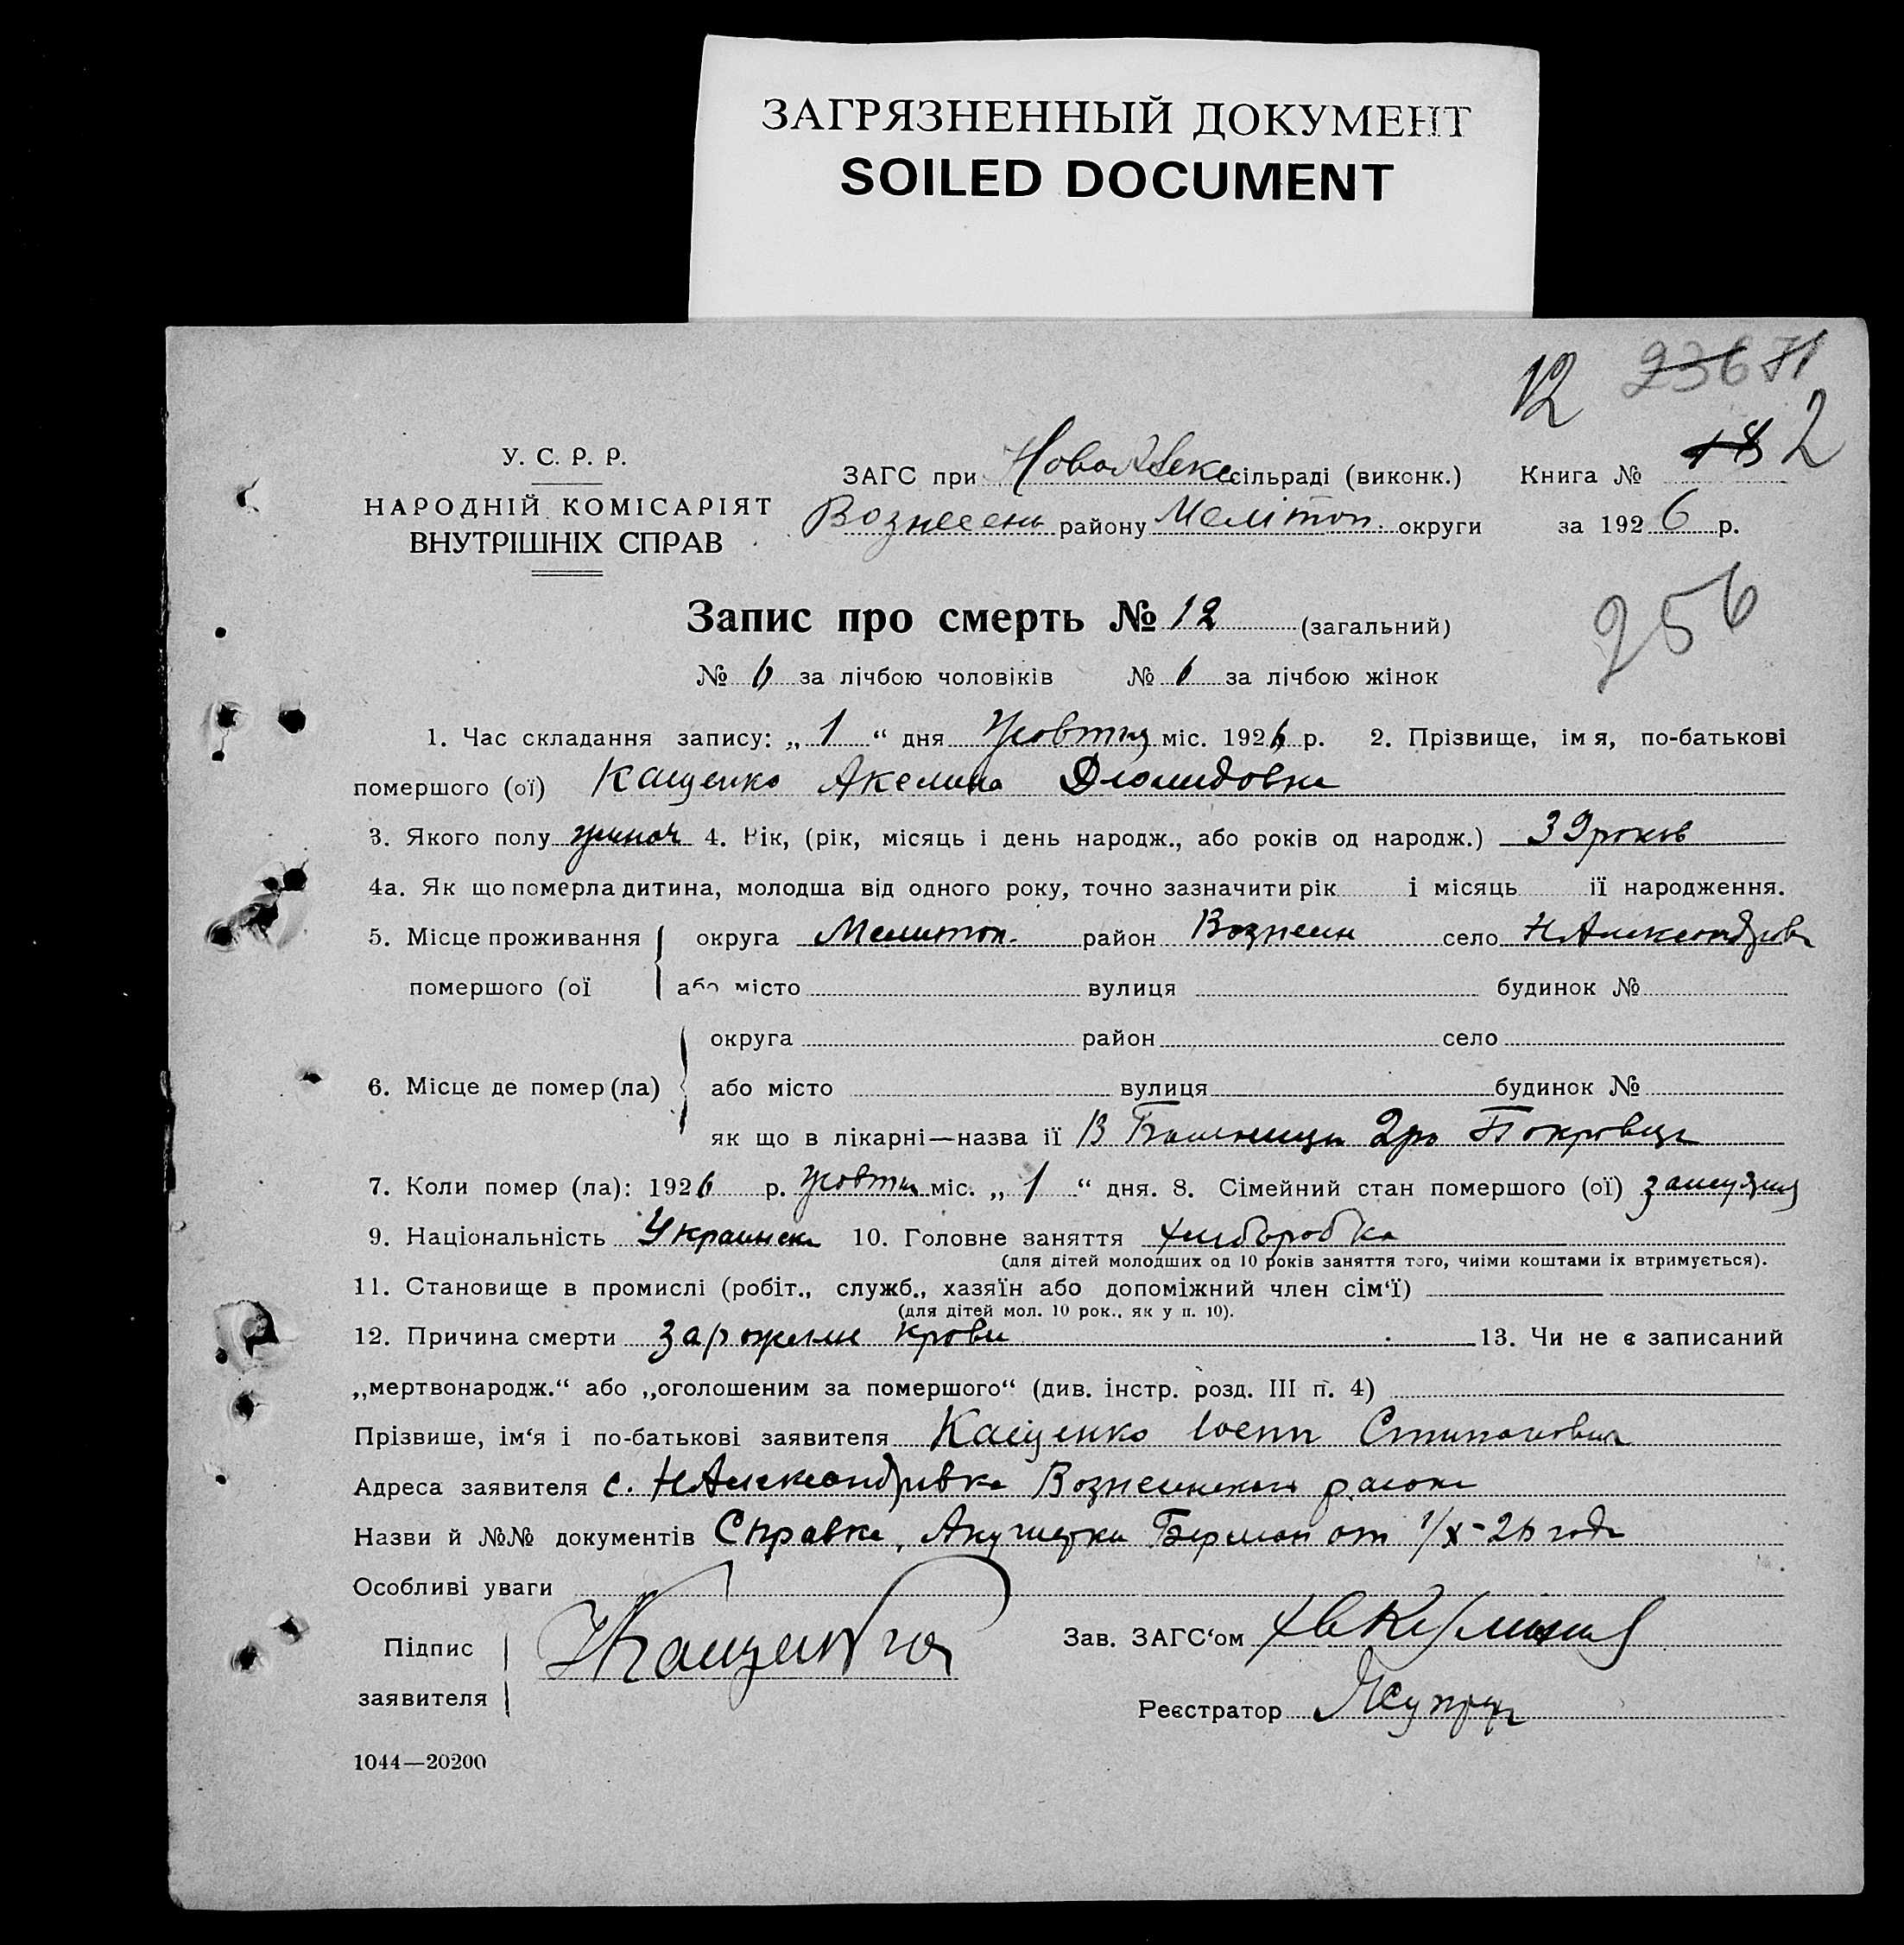 ЗАГРЯЗНЕННЫЙ ДОКУМЕНТ
SOILED DOCUMENT
12 236 71
У. С. Р. Р.
НАРОДНІЙ КОМІСАРІЯТ
ВНУТРІШНІХ СПРАВ
ЗАГС при НовоАлекс сільраді (виконк.) Книга № 2
Вознесен району Мелітоп. округи за 1926 р.
Запис про смерть № 12 (загальний)
256
№ 6 за лічбою чоловіків № 6 за лічбою жінок
1. Час складання запису: „ 1 “ дня Жовтня міс. 1926 р. 2. Прізвище, імя, по-батькові
помершого (ої) Кащенко Акелина Диомидовна
3. Якого полу жиноч 4. Рік, (рік, місяць і день народж., або років од народж.) 39 роков
4а. Як що померла дитина, молодша від одного року, точно зазначити рік і місяць її народження.
5. Місце проживання округа Мелитоп. район Вознесен село НАлександров
помершого (ої або місто вулиця будинок №
округа район село
6. Місце де помер (ла) або місто вулиця будинок №
як що в лікарні—назва її В Больници 2го Покровця
7. Коли помер (ла): 1926 р. жовтня міс. „ 1 “ дня. 8. Сімейний стан помершого (ої) замужня
9. Національність Украинка 10. Головне заняття хлиборобка
(для дітей молодших од 10 років заняття того, чиїми коштами їх втримується).
11. Становище в промислі (робіт., служб., хазяїн або допоміжний член сім‘ї)
(для дітей мол. 10 рок., як у п. 10).
12. Причина смерти заражение крови 13. Чи не є записаний
„мертвонародж.“ або „оголошеним за помершого“ (див. інстр. розд. III п. 4)
Прізвише, ім‘я і по-батькові заявителя Кащенко Иосип Стипанович
Адреса заявителя с. НАлександривка Вознесенского района
Назви й №№ документів Справка, Акушерки Берман от 1/X-26 года
Особливі уваги
Підпис
заявителя
Кащенко
Зав. ЗАГС‘ом
Реєстратор
1044—20200